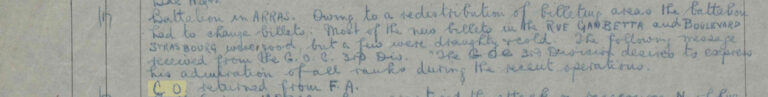 17
Battalion in ARRAS. Owing to a redistribution of billeting areas the battalion
had to change billets. Most of the new billets in the RUE GAMBETTA and BOULEVARD
STRASBOURG were good, but a few were draughty & cold. The following message
received from the G.O.C. 3rd Div. "The G.O.C. 3rd Division desires to express
his admiration of all ranks during the recent operations.
C.O. returned from F.A.